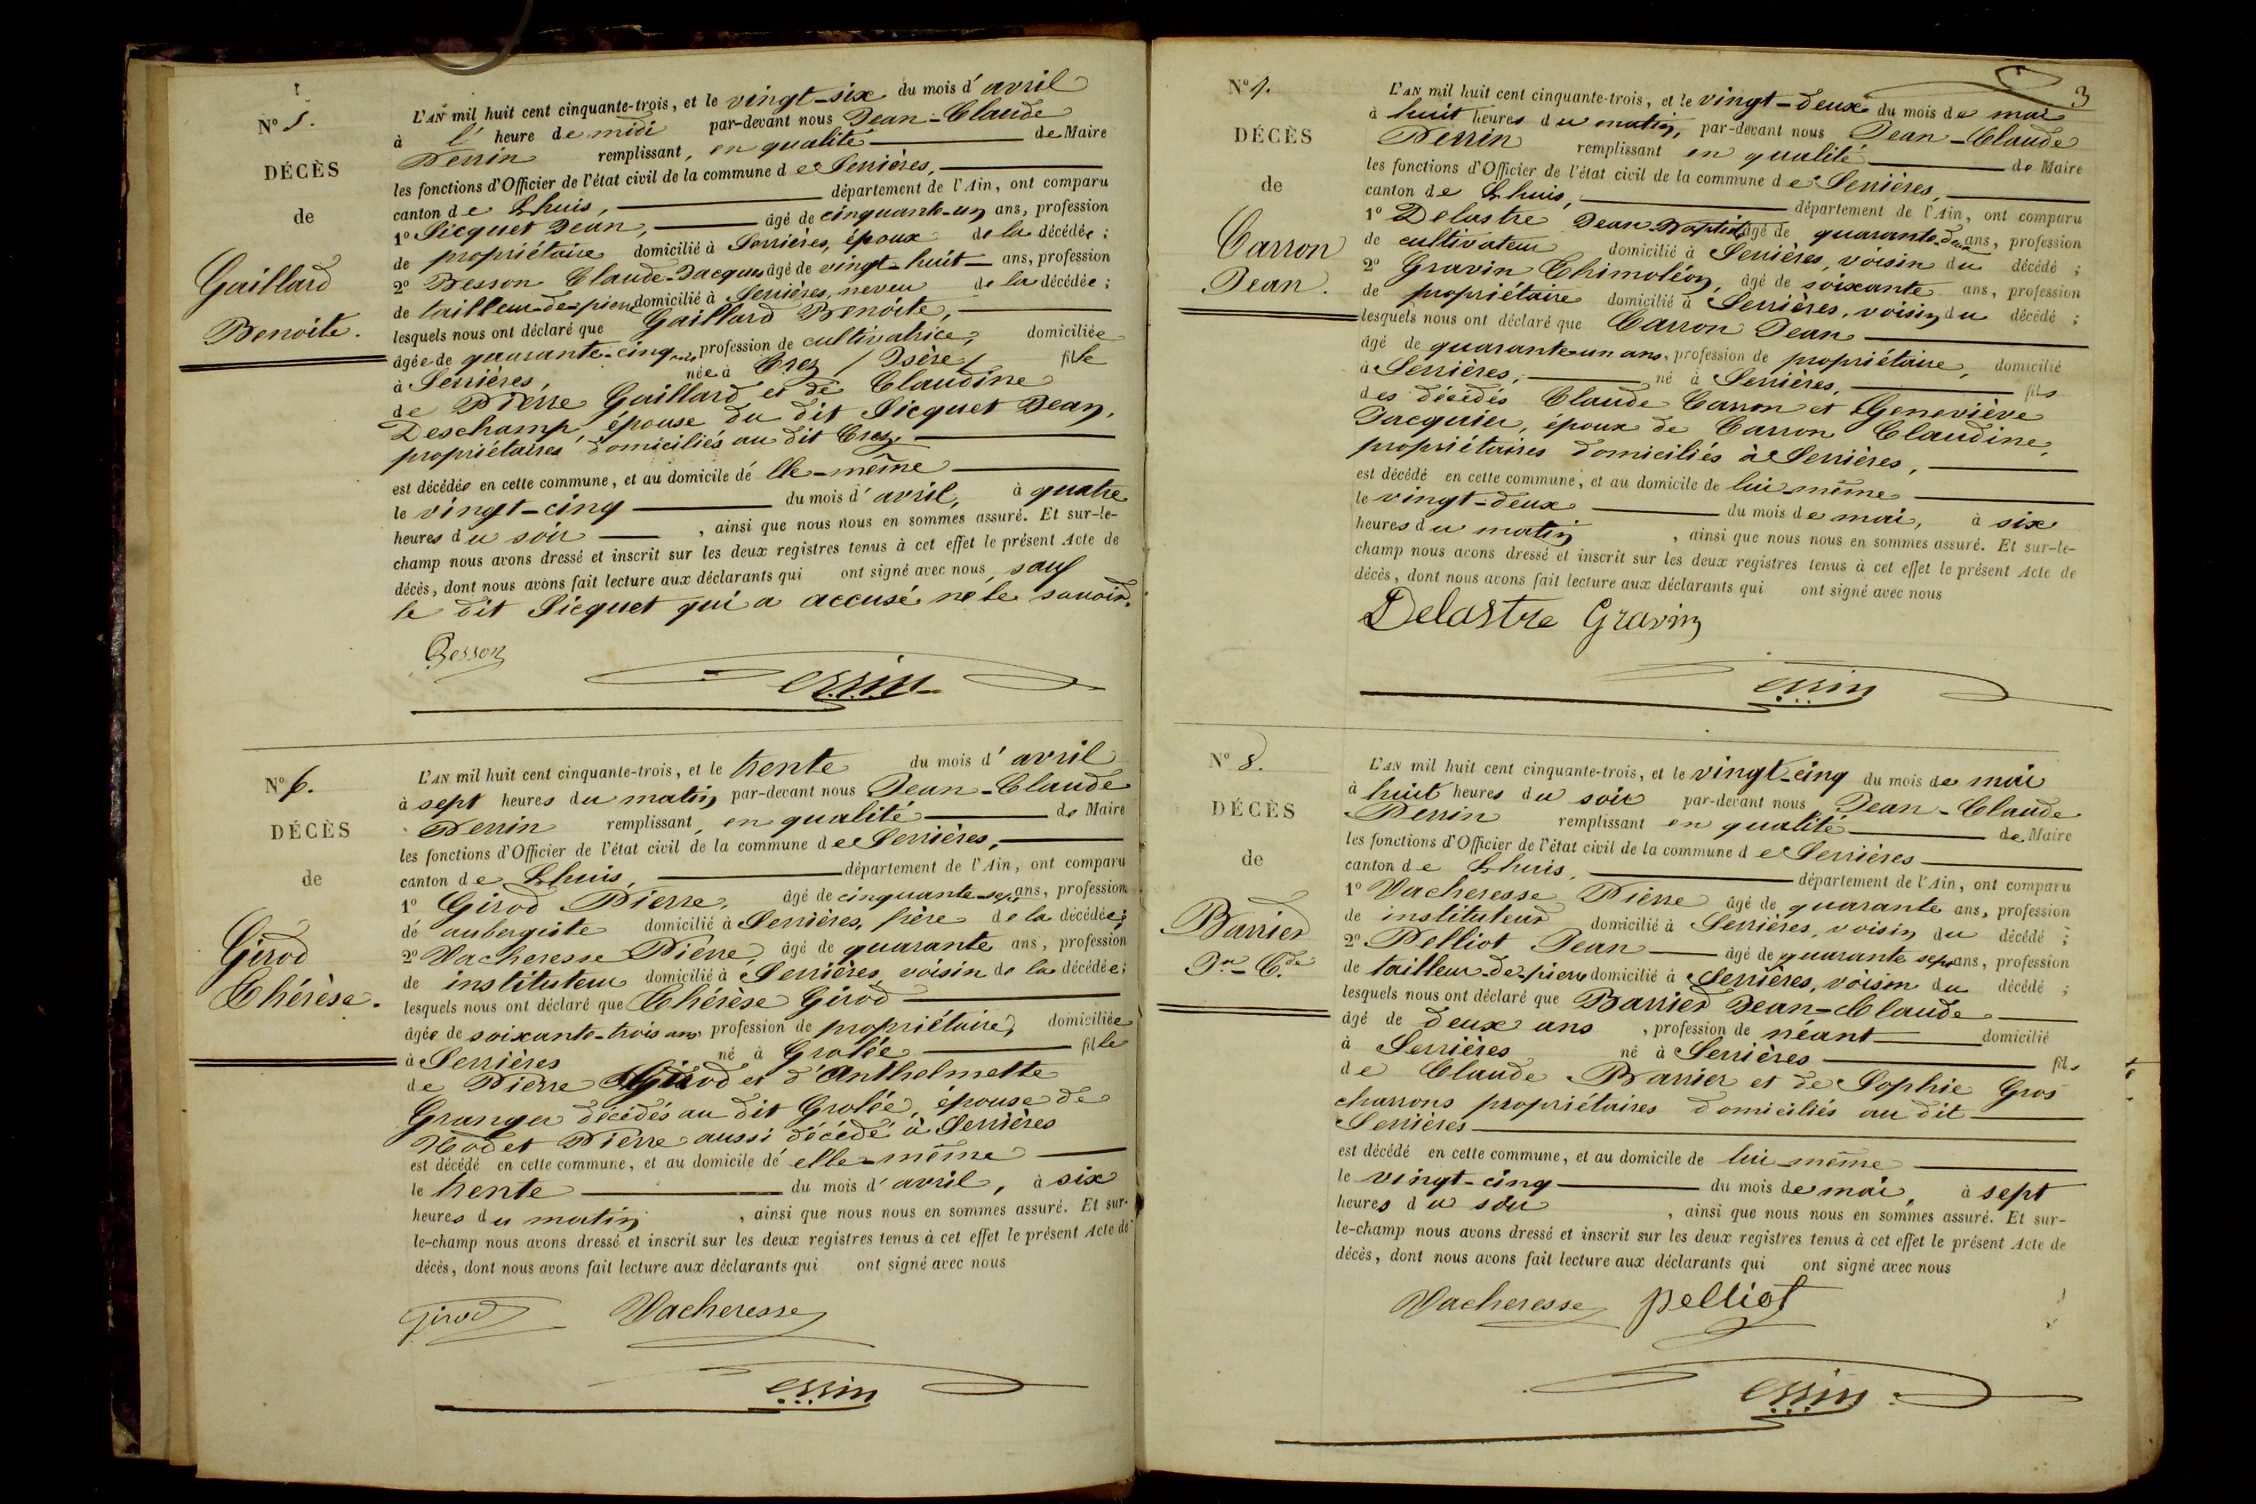 N.º 5.
DÉCÈS
de
Gaillard
Benoîte.
L'AN mil huit cent cinquante-trois, et le vingt-six du mois d'avril
à l'heure de midi par-devant nous Jean-Claude
Perrin remplissant, en qualité de Maire
les fonctions d'Officier de l'état civil de la commune de Serrières,
canton de Lhuis, département de l'Ain, ont comparu
1º Sicquet Jean, âgé de cinquante-un ans, profession
de propriétaire domicilié à Serrières, époux de la décédée ;
2º Besson Claude-Jacques âgé de vingt-huit ans, profession
de tailleur-de-pierre domicilié à Serrières, neveu de la décédée ;
lesquels nous ont déclaré que Gaillard Benoîte,
âgée de quarante-cinq ans, profession de cultivatrice, domiciliée
à Serrières, née à Crez / Isère / fille
de Pierre Gaillard et de Claudine
Deschamp, épouse du dit Sicquet Jean,
propriétaires domiciliés au dit Crez,
est décédée en cette commune, et au domicile d'elle-même
le vingt-cinq du mois d'avril, à quatre
heures du soir, ainsi que nous nous en sommes assuré. Et sur-le-
champ nous avons dressé et inscrit sur les deux registres tenus à cet effet le présent Acte de
décès, dont nous avons fait lecture aux déclarants qui ont signé avec nous, sauf
le dit Sicquet qui a accusé ne le savoir.
Besson
Perrin
Nº 6.
DÉCÈS
de
Girod
Thérèse.
L'AN mil huit cent cinquante-trois, et le trente du mois d'avril
à sept heures du matin par-devant nous Jean-Claude
Perrin remplissant, en qualité de Maire
les fonctions d'Officier de l'état civil de la commune de Serrières,
canton de Lhuis, département de l'Ain, ont comparu
1º Girod Pierre, âgé de cinquante-sept ans, profession
de aubergiste domicilié à Serrières, frère de la décédée ;
2º Vacheresse Pierre, âgé de quarante ans, profession
de instituteur domicilié à Serrières voisin de la décédée ;
lesquels nous ont déclaré que Thérèse Girod
âgée de soixante-trois ans profession de propriétaire, domiciliée
à Serrières né à Grolée fille
de Pierre Girod et d'Anthelmette
Granger décédés au dit Grolée, épouse de
Hodet Pierre aussi décédé à Serrières
est décédé en cette commune, et au domicile d'elle-même
le trente du mois d'avril, à six
heures du matin, ainsi que nous nous en sommes assuré. Et sur-
le-champ nous avons dressé et inscrit sur les deux registres tenus à cet effet le présent Acte de
décès, dont nous avons fait lecture aux déclarants qui ont signé avec nous
Girod Vacheresse
Perrin
3
Nº 7.
DÉCÈS
de
Carron
Jean.
L'AN mil huit cent cinquante-trois, et le vingt-deux du mois de mai
à huit heures du matin, par-devant nous Jean-Claude
Perrin remplissant en qualité de Maire
les fonctions d'Officier de l'état civil de la commune de Serrières,
canton de Lhuis, département de l'Ain, ont comparu
1º Delastre Jean-Baptiste âgé de quarante-deux ans, profession
de cultivateur domicilié à Serrières, voisin du décédé ;
2º Gravin Thimoléon, âgé de soixante ans, profession
de propriétaire domicilié à Serrières, voisin du décédé ;
lesquels nous ont déclaré que Carron Jean
âgé de quarante-un ans, profession de propriétaire, domicilié
à Serrières, né à Serrières, fils
des décédés Claude Carron et Geneviève
Jacquier, époux de Carron Claudine,
propriétaires domiciliés à Serrières,
est décédé en cette commune, et au domicile de lui-même
le vingt-deux du mois de mai, à six
heures du matin, ainsi que nous nous en sommes assuré. Et sur-le-
champ nous avons dressé et inscrit sur les deux registres tenus à cet effet le présent Acte de
décès, dont nous avons fait lecture aux déclarants qui ont signé avec nous
Delastre Gravin
Perrin
Nº 8.
DÉCÈS
de
Barrier
Jn-Cde
L'AN mil huit cent cinquante-trois, et le vingt-cinq du mois de mai
à huit heures du soir par-devant nous Jean-Claude
Perrin remplissant en qualité de Maire
les fonctions d'Officier de l'état civil de la commune de Serrières
canton de Lhuis, département de l'Ain, ont comparu
1º Vacheresse Pierre âgé de quarante ans, profession
de instituteur domicilié à Serrières, voisin du décédé ;
2º Pelliot Jean âgé de quarante sept ans, profession
de tailleur-de-pierre domicilié à Serrières, voisin du décédé ;
lesquels nous ont déclaré que Barrier Jean-Claude
âgé de deux ans, profession de néant domicilié
à Serrières né à Serrières fils
de Claude Barrier et de Sophie Gros
charrons propriétaires domiciliés au dit
Serrières
est décédé en cette commune, et au domicile de lui-même
le vingt-cinq du mois de mai, à sept
heures du soir, ainsi que nous nous en sommes assuré. Et sur-
le-champ nous avons dressé et inscrit sur les deux registres tenus à cet effet le présent Acte de
décès, dont nous avons fait lecture aux déclarants qui ont signé avec nous
Vacheresse pelliot
Perrin